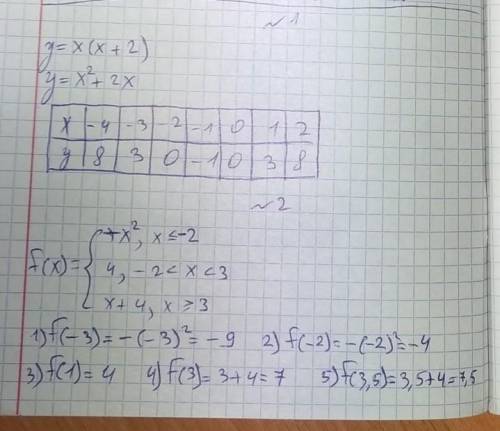 ~1
y=x(x+2)
y=x²+2x
x -4 -3 -2 -1 0 1 2
y 8 3 0 -1 0 3 8
~2
-x², x≤-2
f(x)={ 4, -2<x<3
x+4, x≥3
1) f(-3)=-(-3)²=-9 2) f(-2)=-(-2)²=-4
3) f(1)=4 4) f(3)=3+4=7 5) f(3,5)=3,5+4=7,5